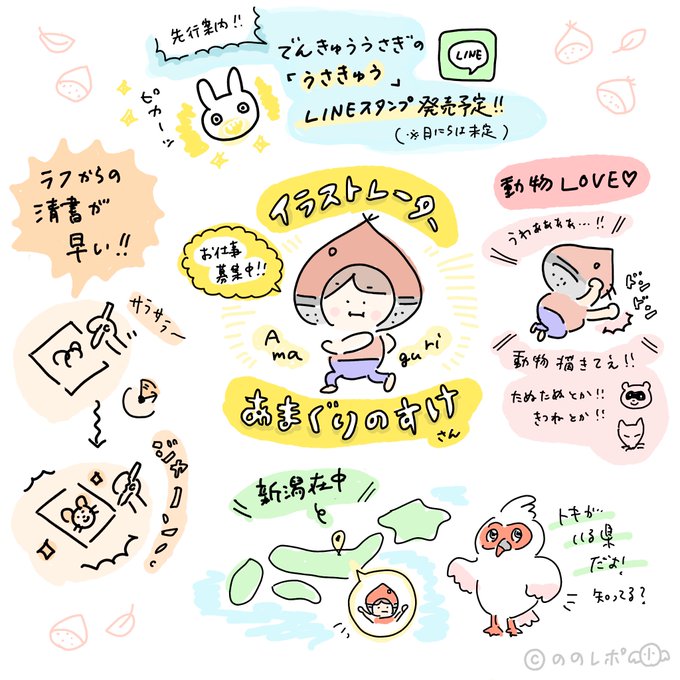 先行案内!!
でんきゅううさぎの
「うさきゅう」
LINEスタンプ発売予定!!
(※日にちは未定)
LINE
ピカーッ
ラフからの
清書が
早い!!
サラサラー
ジャーン
イラストレーター
お仕事
募集中!!
Ama
guri
あまぐりのすけ
さん
動物LOVE♡
うわぁぁぁぁ…!!
ドン
ドン
動物描きてえ!!
たぬたぬとか!!
きつねとか!!
新潟在中
と
トキが
いる県
だよ!
知ってる?
©ののレポ